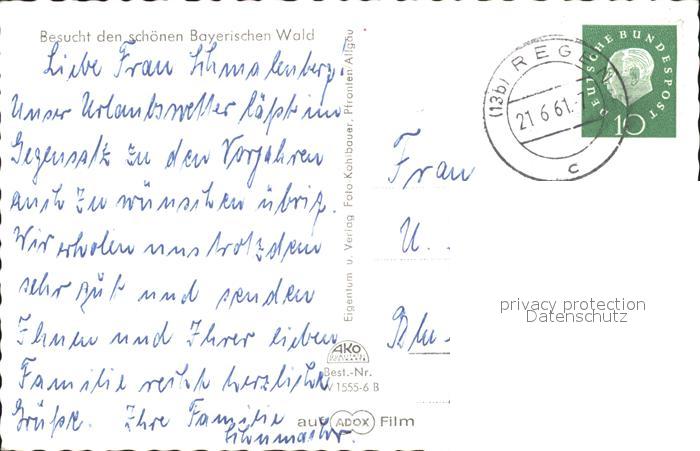 Besucht den schönen Bayerischen Wald
Liebe Frau Schmalenberg.
Unser Urlaubswetter läßt im
Gegensatz zu den Vorjahren
auch zu wünschen übrig.
Wir erholen uns trotzdem
sehr gut und senden
Ihnen und Ihrer lieben
Familie recht herzliche
Grüße. Ihre Familie
Eigentum u. Verlag Foto Kohlbauer, Pfronten-Allgäu
AKO
Best.-Nr.
V 1555-6 B
auf ADOX Film
Frau
U.
(13b) REGEN
21.6.61.-
c
DEUTSCHE BUNDESPOST
10
privacy protection
Datenschutz